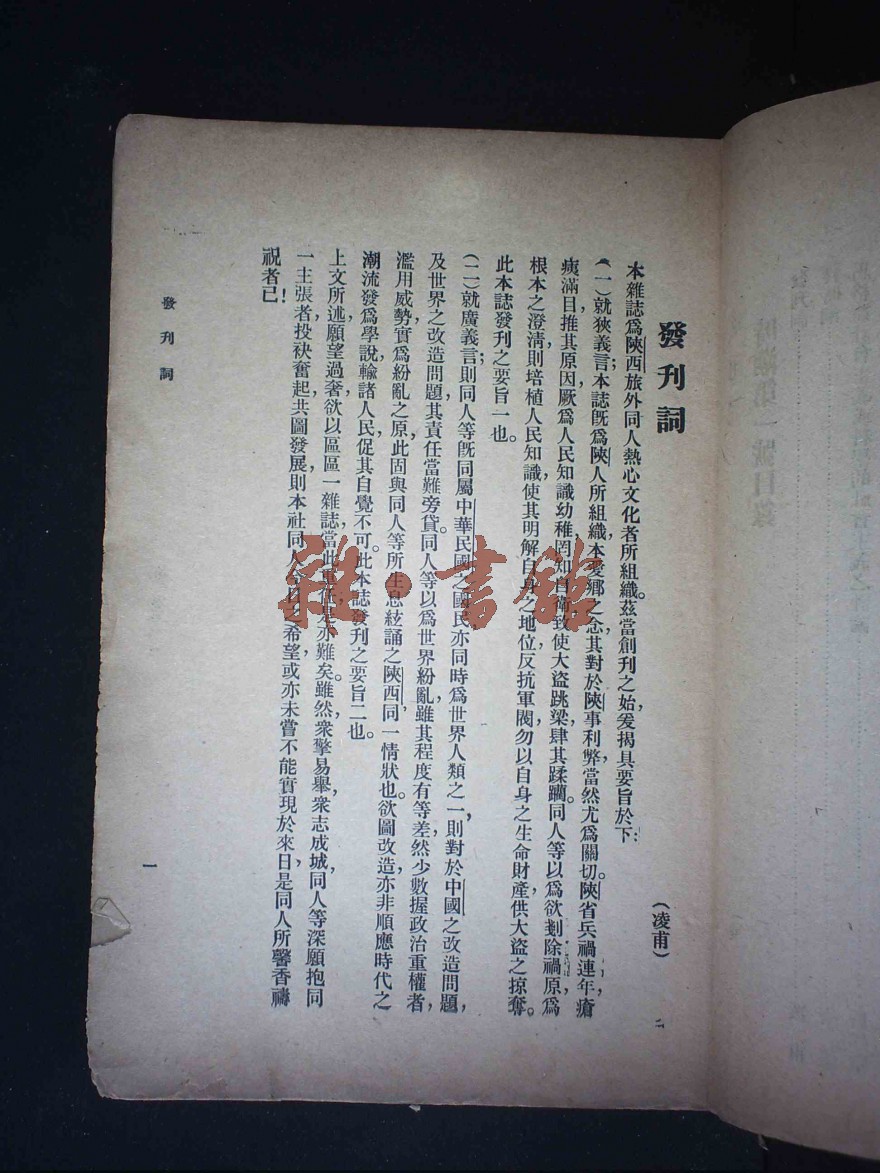 發刊詞
(凌甫)
本雜誌爲陝西旅外同人熱心文化者所組織。茲當創刊之始,爰揭具要旨於下:
(一)就狹義言;本誌旣爲陝人所組織,本愛鄕之念,其對於陝事利弊,當然尤爲關切。陝省兵禍連年,瘡
痍滿目,推其原因,厥爲人民知識幼稚,罔知自衞,致使大盜跳梁,肆其蹂躪。同人等以爲欲剗除禍原,爲
根本之澄淸,則培植人民知識,使其明解自身之地位,反抗軍閥,勿以自身之生命財產,供大盜之掠奪。
此本誌發刊之要旨一也。
(二)就廣義言;則同人等旣同屬中華民國之國民,亦同時爲世界人類之一,則對於中國之改造問題,
及世界之改造問題,其責任當難旁貸。同人等以爲世界紛亂,雖其程度有等差,然少數握政治重權者,
濫用威勢,實爲紛亂之原,此固與同人等所生息絃誦之陝西,同一情狀也。欲圖改造,亦非順應時代之
潮流,發爲學說,輸諸人民,促其自覺不可。此本誌發刊之要旨二也。
上文所述,願望過奢,欲以區區一雜誌,當此重任,是亦難矣。雖然,衆擎易舉,衆志成城,同人等深願抱同
一主張者,投袂奮起,共圖發展,則本社同人今日之希望,或亦未嘗不能實現於來日,是同人所馨香禱
祝者已!
發刊詞
一
雜·書館